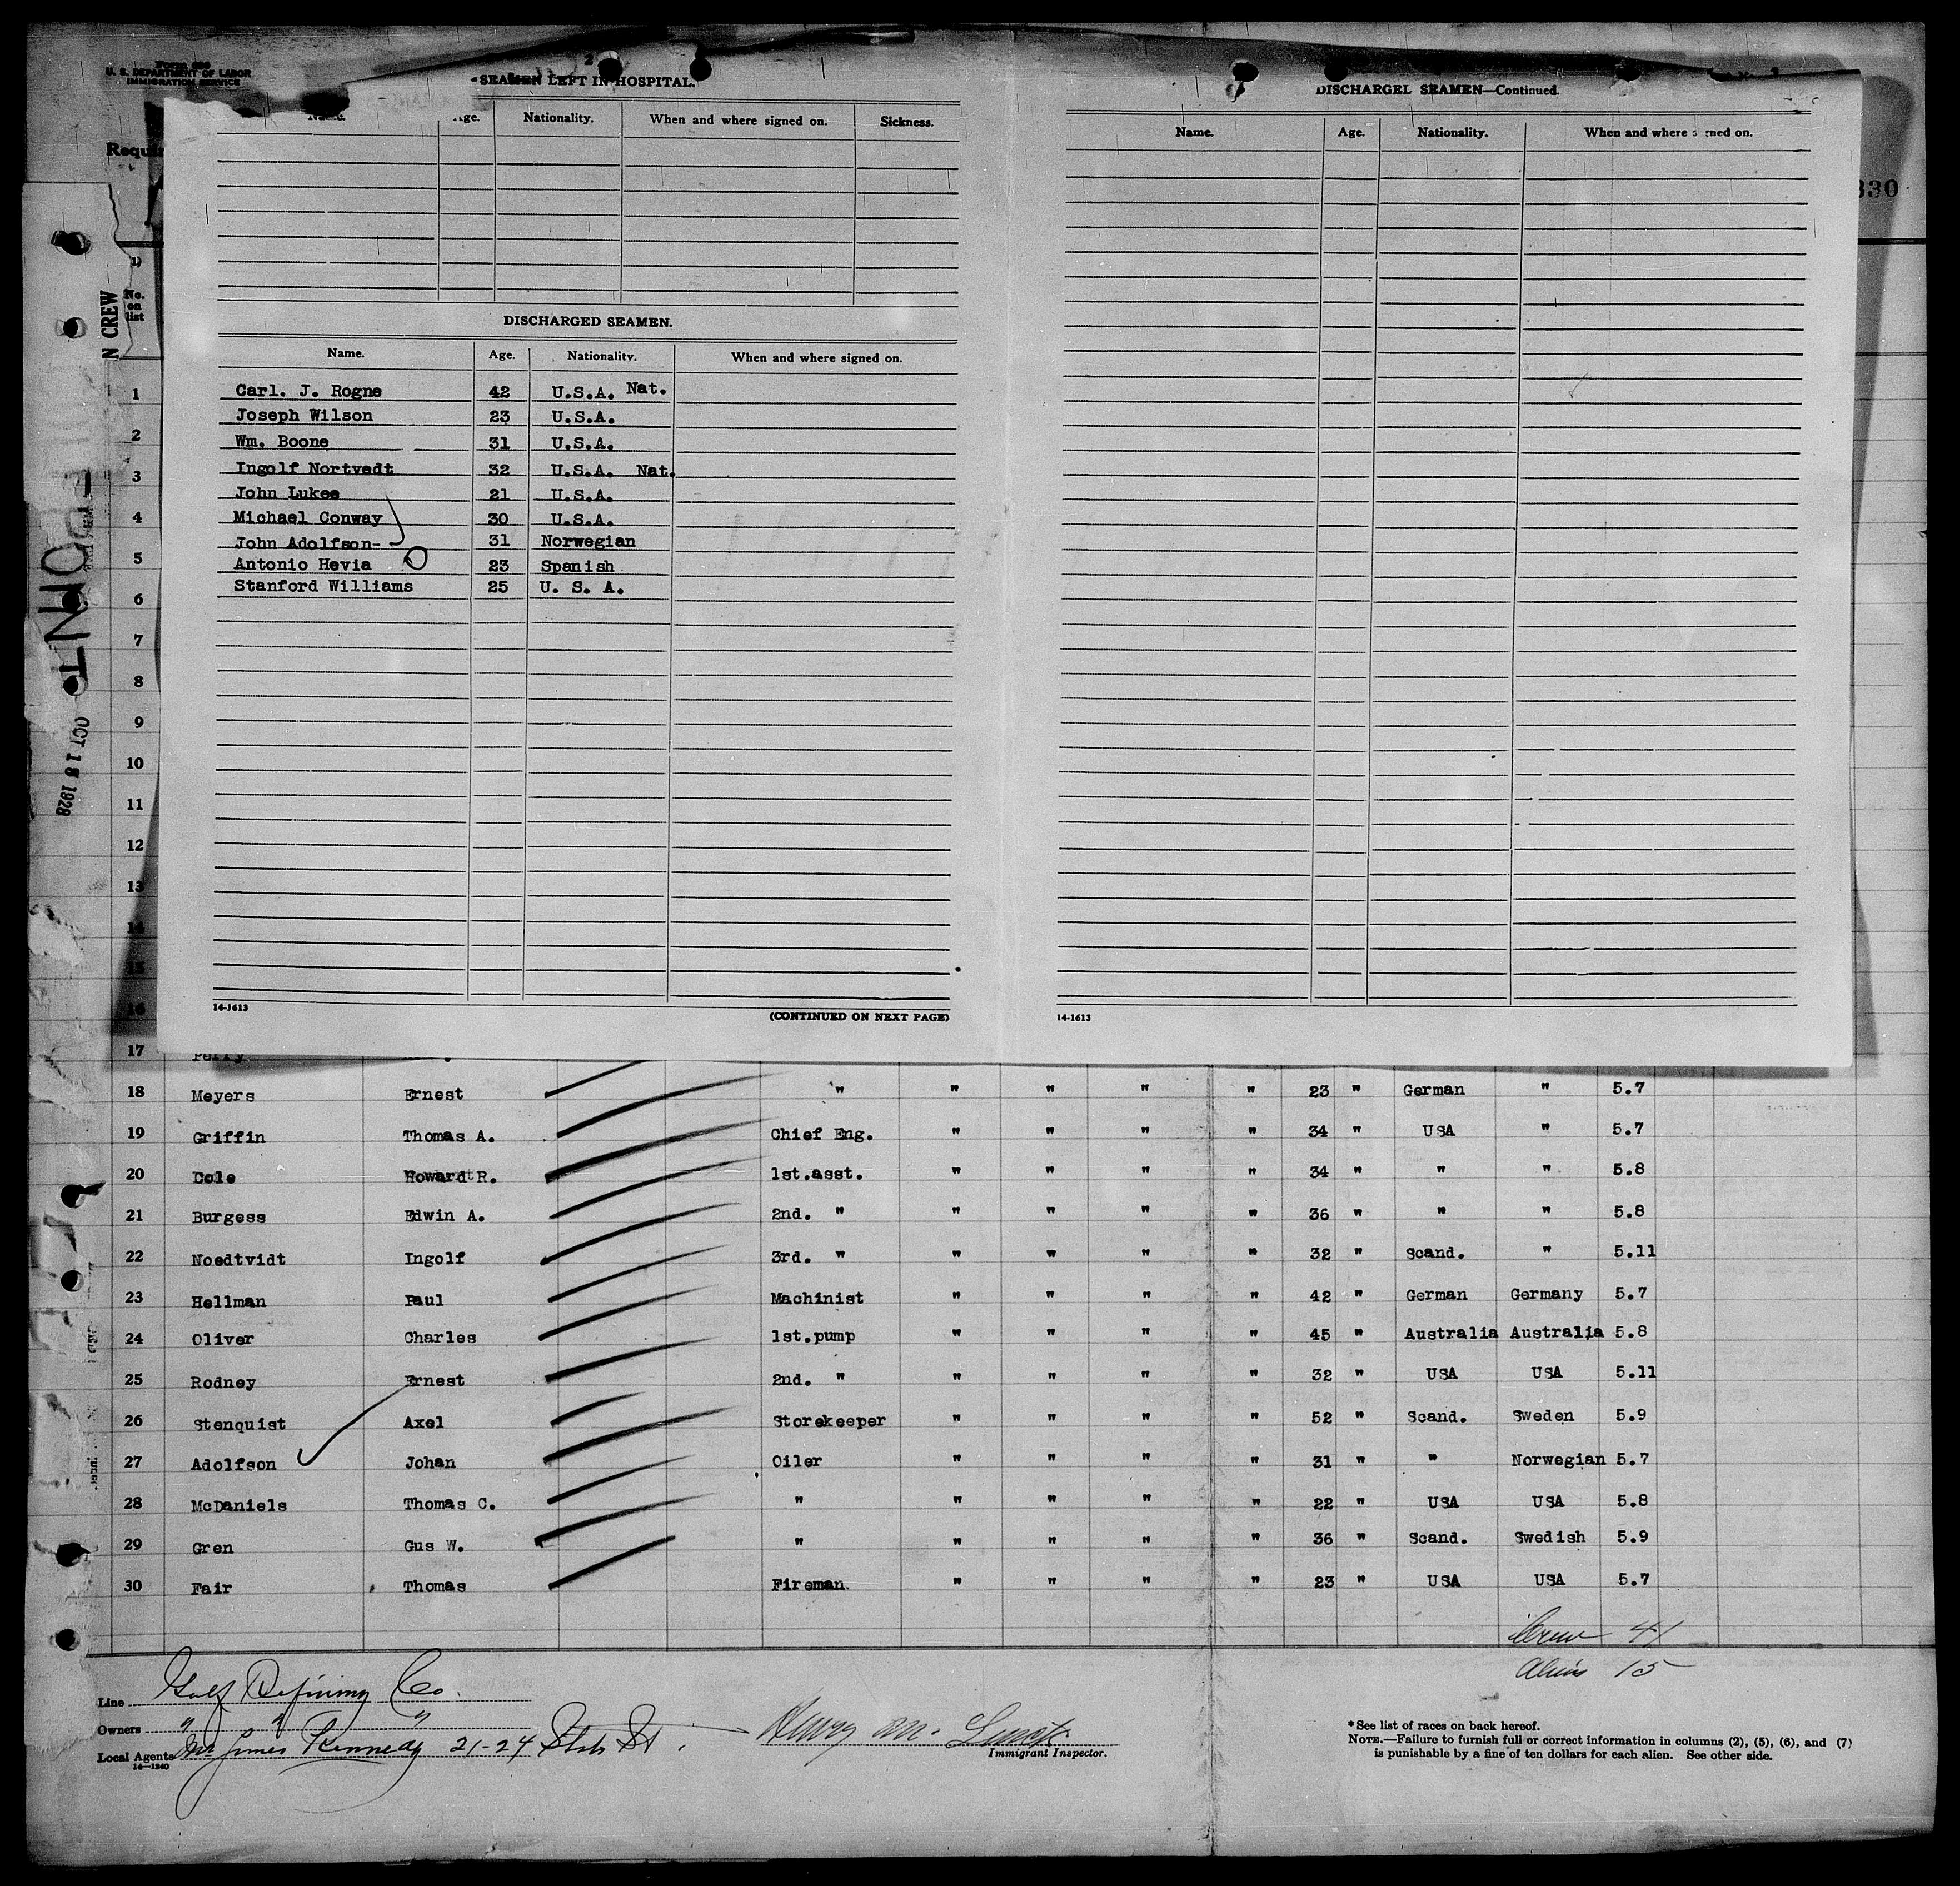 U. S. DEPARTMENT OF LABOR
IMMIGRATION SERVICE
2
SEAMEN LEFT IN HOSPITAL.
Nationality. When and where signed on. Sickness.
DISCHARGED SEAMEN.
Name. Age. Nationality. When and where signed on.
Carl. J. Rogne 42 U.S.A. Nat.
Joseph Wilson 23 U.S.A.
Wm. Boone 31 U.S.A.
Ingolf Nortvedt 32 U.S.A. Nat.
John Lukee 21 U.S.A.
Michael Conway 30 U.S.A.
John Adolfson- 31 Norwegian
Antonio Hevia 23 Spanish
Stanford Williams 25 U. S. A.
14-1613
(CONTINUED ON NEXT PAGE)
DISCHARGED SEAMEN—Continued.
Name. Age. Nationality. When and where signed on.
14-1613
330
N CREW
OCT 18 1928
No.
on
list
1
2
3
4
5
6
7
8
9
10
11
12
13
14
15
16
17 Perry
18 Meyers Ernest " " " " " 23 " German " 5.7
19 Griffin Thomas A. Chief Eng. " " " " 34 " USA " 5.7
20 Cole Howard R. 1st.asst. " " " " 34 " " " 5.8
21 Burgess Edwin A. 2nd. " " " " " 36 " " " 5.8
22 Noedtvidt Ingolf 3rd. " " " " " 32 " Scand. " 5.11
23 Hellman Paul Machinist " " " " 42 " German Germany 5.7
24 Oliver Charles 1st.pump " " " " 45 " Australia Australia 5.8
25 Rodney Ernest 2nd. " " " " " 32 " USA USA 5.11
26 Stenquist Axel Storekeeper " " " " 52 " Scand. Sweden 5.9
27 Adolfson Johan Oiler " " " " 31 " " Norwegian 5.7
28 McDaniels Thomas C. " " " " " 22 " USA USA 5.8
29 Gren Gus W. " " " " " 36 " Scand. Swedish 5.9
30 Fair Thomas Fireman " " " " 23 " USA USA 5.7
Crew 41
Aliens 15
Line Gulf Refining Co.
Owners " " "
Local Agents James Kennedy 21-24 State St.
14—1240
Henry M.
Immigrant Inspector.
*See list of races on back hereof.
NOTE.—Failure to furnish full or correct information in columns (2), (5), (6), and (7)
is punishable by a fine of ten dollars for each alien. See other side.